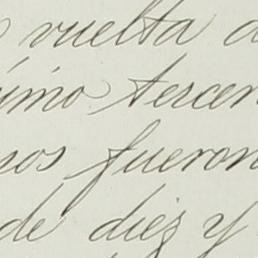 vuelta
imo tercer
nos fueron
de diez y